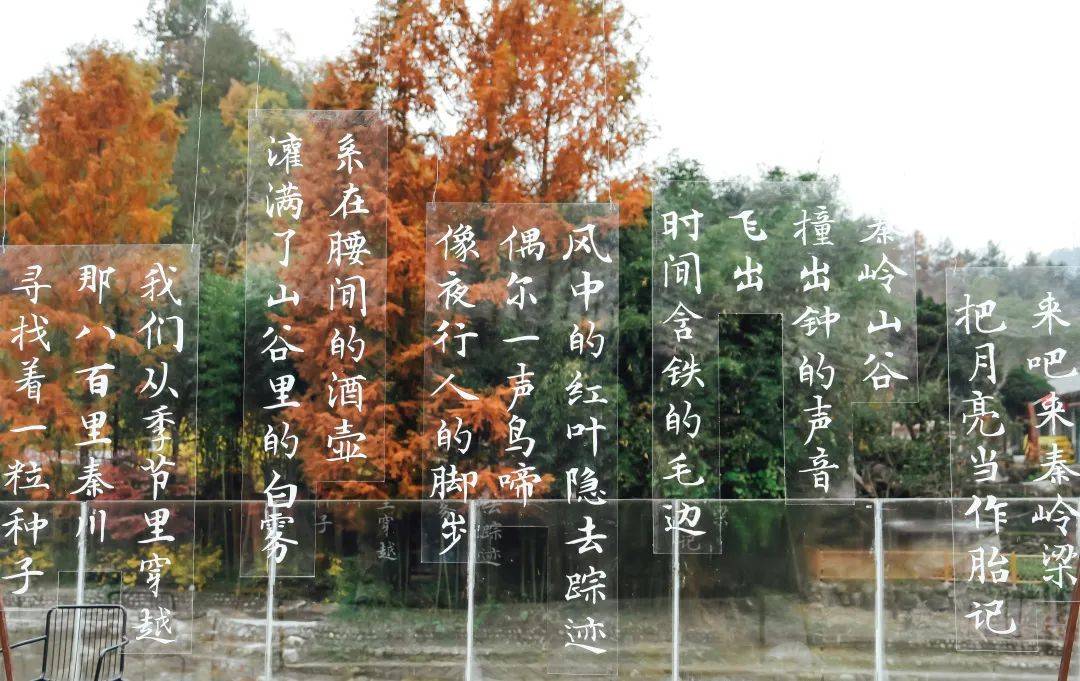 来吧来秦岭梁
把月亮当作胎记
秦岭山谷
撞出钟的声音
飞出
时间含铁的毛边
风中的红叶隐去踪迹
偶尔一声鸟啼
像夜行人的脚步
系在腰间的酒壶
灌满了山谷里的白雾
我们从季节里穿越
那八百里秦川
寻找着一粒种子